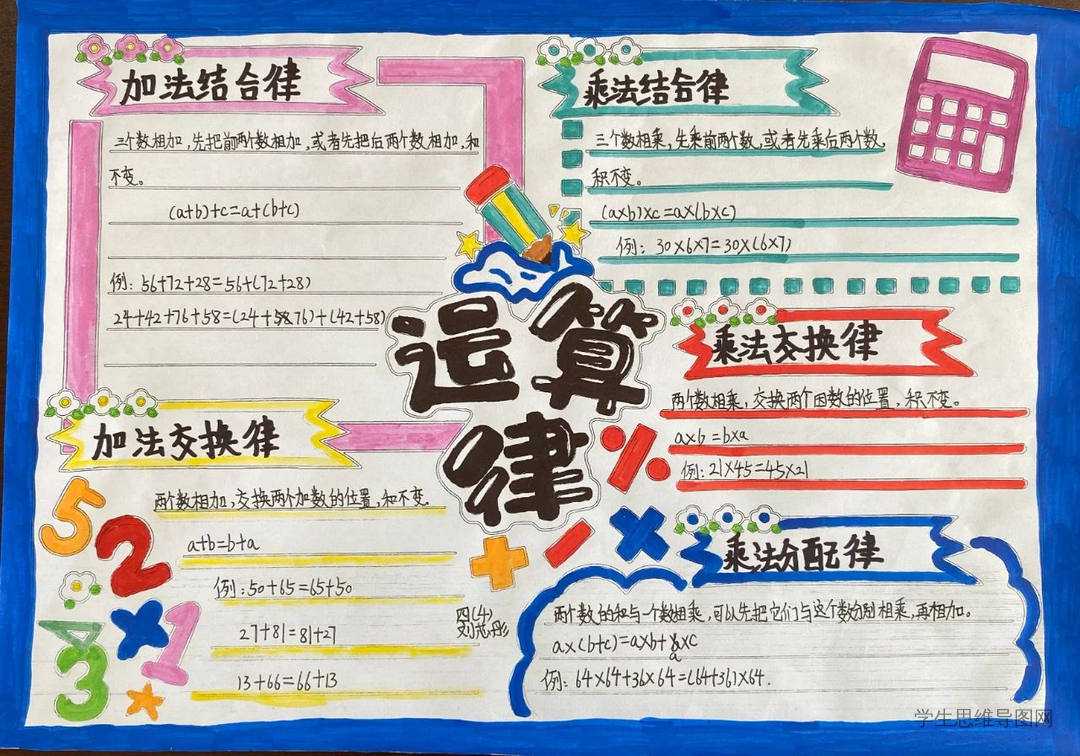 加法结合律
三个数相加,先把前两个数相加,或者先把后两个数相加,和
不变。
(a+b)+c=a+(b+c)
例:56+72+28=56+(72+28)
24+42+76+58=(24+76)+(42+58)
乘法结合律
三个数相乘,先乘前两个数,或者先乘后两个数,
积不变。
(a×b)×c=a×(b×c)
例:30×6×7=30×(6×7)
运算
律
乘法交换律
两个数相乘,交换两个因数的位置,积不变。
a×b=b×a
例:21×45=45×21
加法交换律
两个数相加,交换两个加数的位置,和不变.
a+b=b+a
例:50+65=65+50
27+81=81+27
13+66=66+13
四(4)
乘法分配律
两个数的和与一个数相乘,可以先把它们与这个数分别相乘,再相加。
a×(b+c)=a×b+a×c
例:64×64+36×64=(64+36)×64.
5
2
×
1
3
%
+
-
×
学生思维导图网